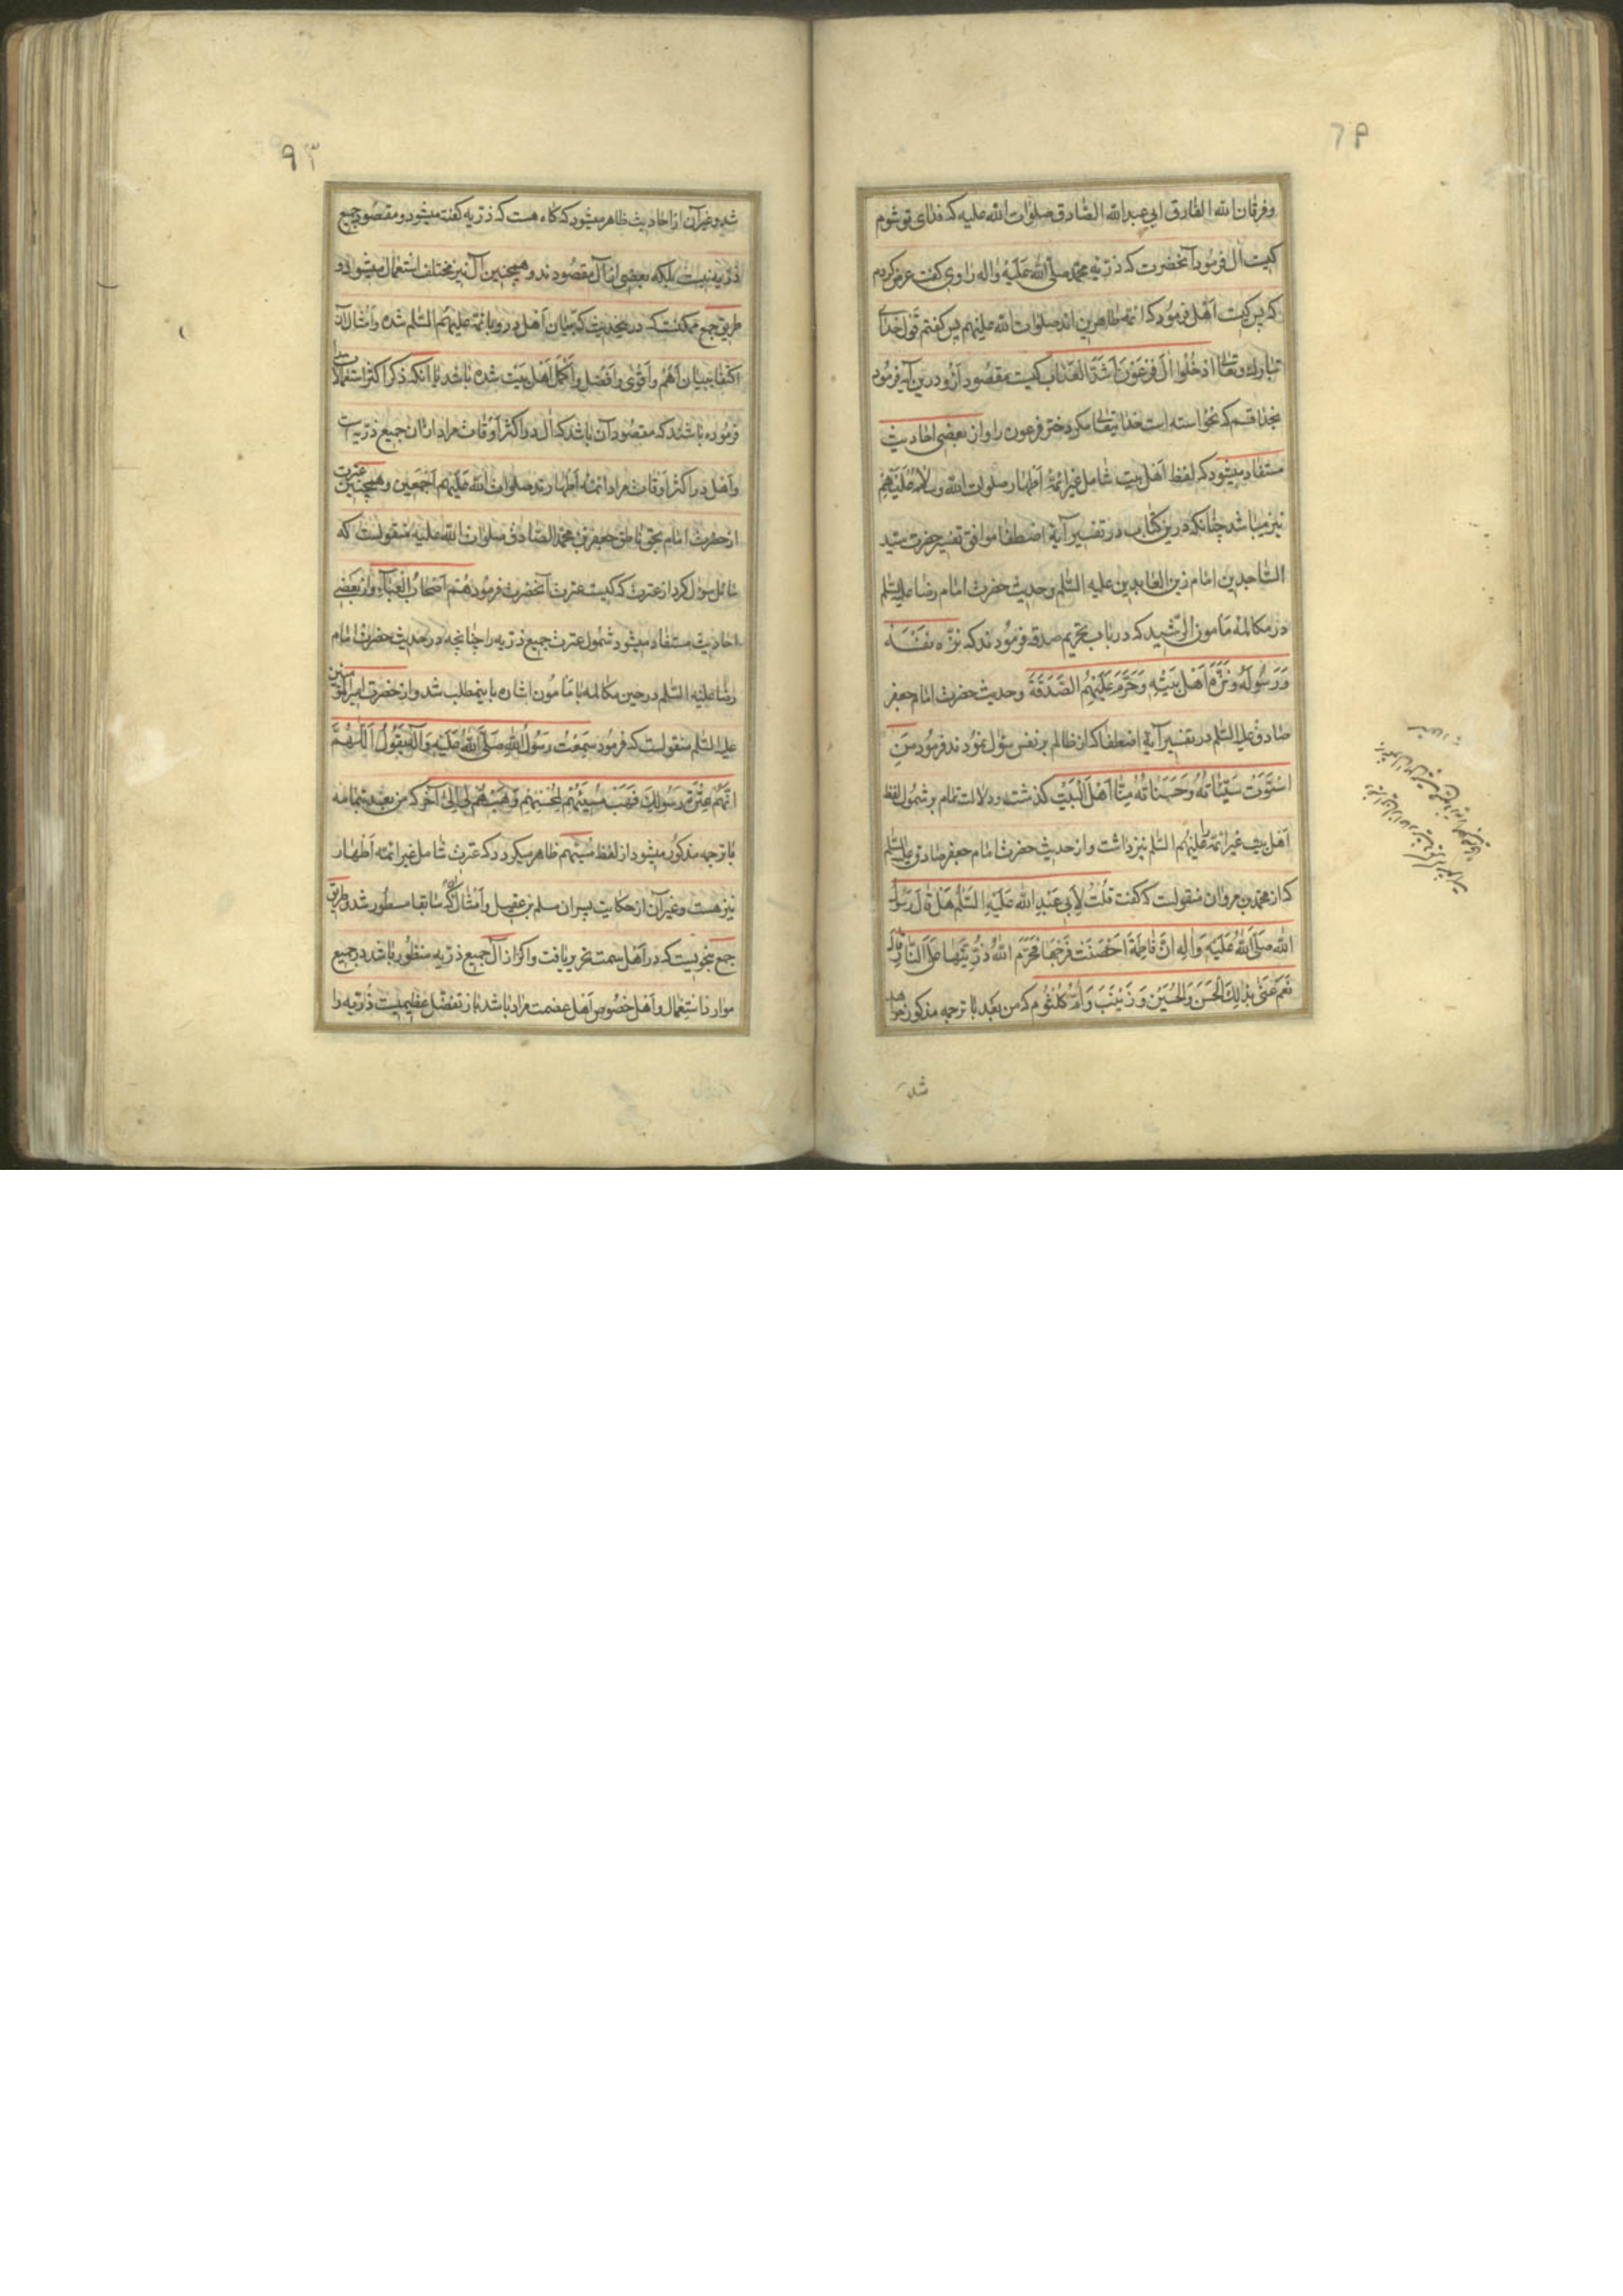 ٦٩
وفرقان الله الفارق ابي عبدالله الصادق صلوات الله عليه که فدای تو شوم
کیست آل فرمود آنحضرت که ذریه محمد صلی الله علیه واله راوی گفت عرض کردم
که پس کیست اهل فرمود که ائمه طاهرین اند صلوات الله علیهم پس گفتم قول خدای
تبارك وتعالی ادخلوا ال فرعون اشد العذاب کیست مقصود ازو درین آیه فرمود
بخدا قسم که نخواسته است خدایتعالی مکر دختر فرعون را واز بعضی احادیث
مستفاد میشود که لفظ اهل بیت شامل غیر ائمه اطهار صلوات الله وسلامه علیهم
نیز میباشد چنانکه درین کتاب در تفسیر آیه اصطفا موافق تفسیر حضرت سید
الساجدین امام زین العابدین علیه السلم وحدیث حضرت امام رضا علیه السلم
در مکالمه مامون الرشید که در باب تحریم صدقه فرمودند که نزه نفسه
ورسوله ونزه اهل بیته وحرم علیهم الصدقة وحدیث حضرت امام جعفر
صادق علیه السلم در تفسیر آیه اصطفا که از ظالم بر نفس سؤل نمودند فرمود من
استوت سیئاته وحسناته منا اهل البیت گذشت ودلالت تمام بر شمول لفظ
اهل بیت غیر ائمه را علیهم السلم نیز داشت واز حدیث حضرت امام جعفر صادق علیه السلم
که از محمد بن مروان منقولست که گفت قلت لابی عبد الله علیه السلم هل قال رسول
الله صلی الله علیه واله ان فاطمة احصنت فرجها فحرم الله ذریتها علی النار قال
نعم عنی بذلك الحسن والحسین وزینب وام کلثوم که من بعد با ترجمه مذکور خواهد
شد
٩٣
شد وغیر آن از احادیث ظاهر میشود که گاه هست که ذریه گفته میشود ومقصود جمیع
ذریه نیست بلکه بعضی از آل مقصودند وهمچنین آل نیز مختلف استعمال میشود و
طریق جمع ممکنست که در حدیث که بیان اهل درو بائمه علیهم السلم شده وامثال آن
اکتفا ببیان اهم واقوی وافضل واکمل اهل بیت شده باشد با آنکه ذکر اکثر استعمالات
فرموده باشند که مقصود آن باشد که آل در اکثر اوقات مراد ازان جمیع ذریه است
واهل در اکثر اوقات مراد ائمه اطهارند صلوات الله علیهم اجمعین وهمچنین عترت
از حضرت امام بحق ناطق جعفر بن محمد الصادق صلوات الله علیه منقولست که
سائل سؤل کرد از عترت که کیست عترت آنحضرت فرمود هم اصحاب العباء واز بعضی
احادیث مستفاد میشود شمول عترت جمیع ذریه را چنانچه در حدیث حضرت امام
رضا علیه السلم در حین مکالمه با مامون اشاره باینمطلب شد واز حضرت امیرالمؤمنین
علیه السلم منقولست که فرمود سمعت رسول الله صلی الله علیه واله یقول اللهم
انهم عترة رسولك فهب مسیئهم لمحسنهم وهبهم لی الی آخر که من بعد بتمامه
با ترجمه مذکور میشود از لفظ مسیئهم ظاهر میگردد که عترت شامل غیر ائمه اطهار
نیز هست وغیر آن از حکایت پسران مسلم بن عقیل وامثال آن که سابقا مسطور شد وطریق
جمع بنحویست که در اهل سمت تحریر یافت واگر از آل جمیع ذریه منظور باشد در جمیع
موارد استعمال واهل خصوص اهل عصمت مراد باشد باز تفضل عظیمیست ذریه را